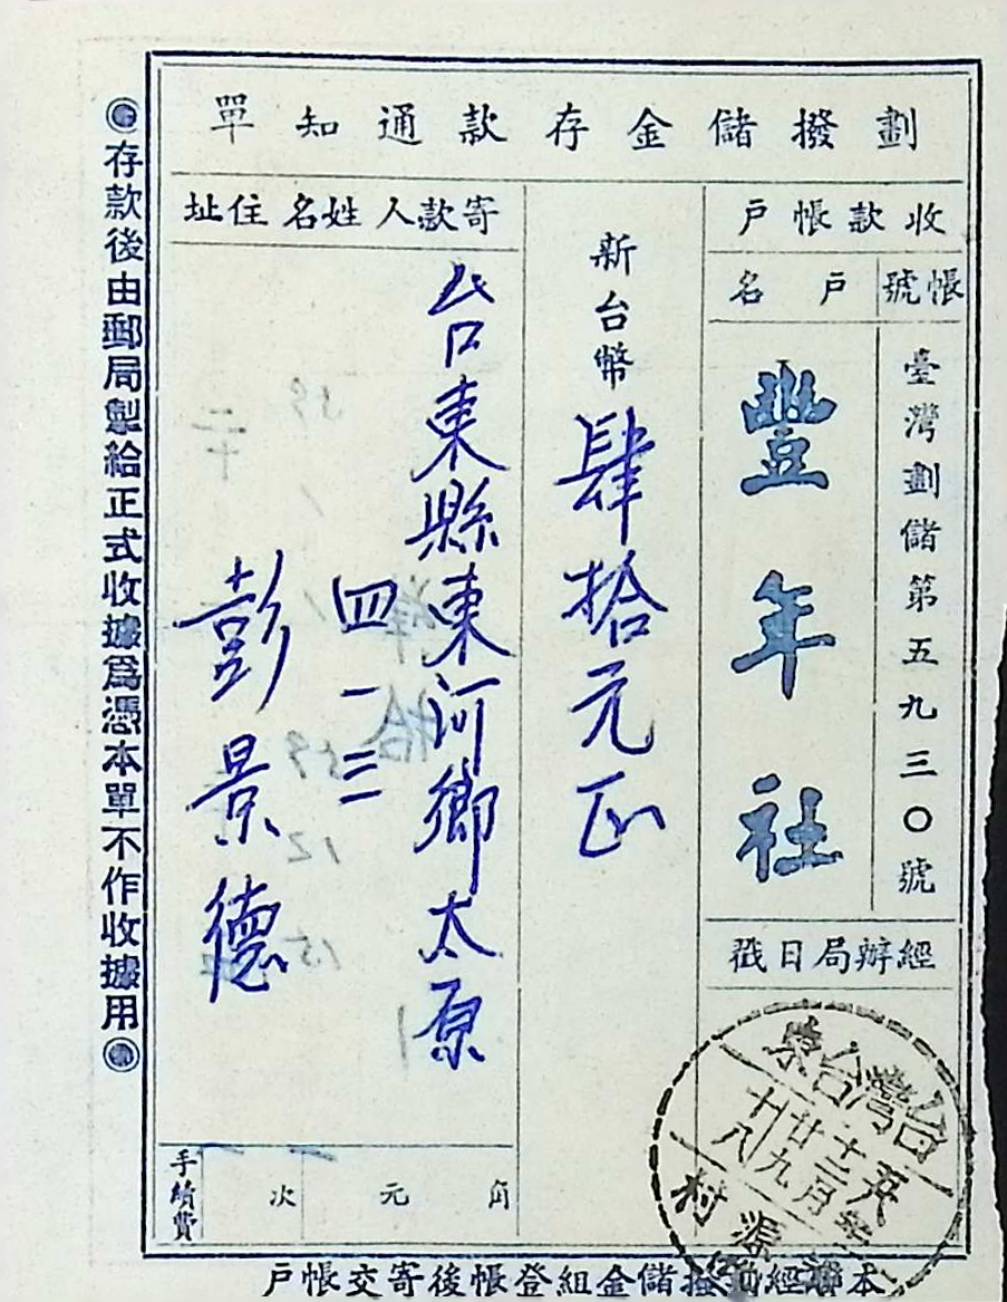 劃撥儲金存款通知單
收款帳戶
帳號
戶名
臺灣劃儲第五九三〇號
豐年社
經辦局日戳
新台幣肆拾元正
寄款人姓名住址
台東縣東河鄉太原
四一三
彭景德
手續費
角
元
次
台灣台東
廿九
十八
源村
◉存款後由郵局製給正式收據爲憑本單不作收據用◉
金組登帳後寄交帳戶